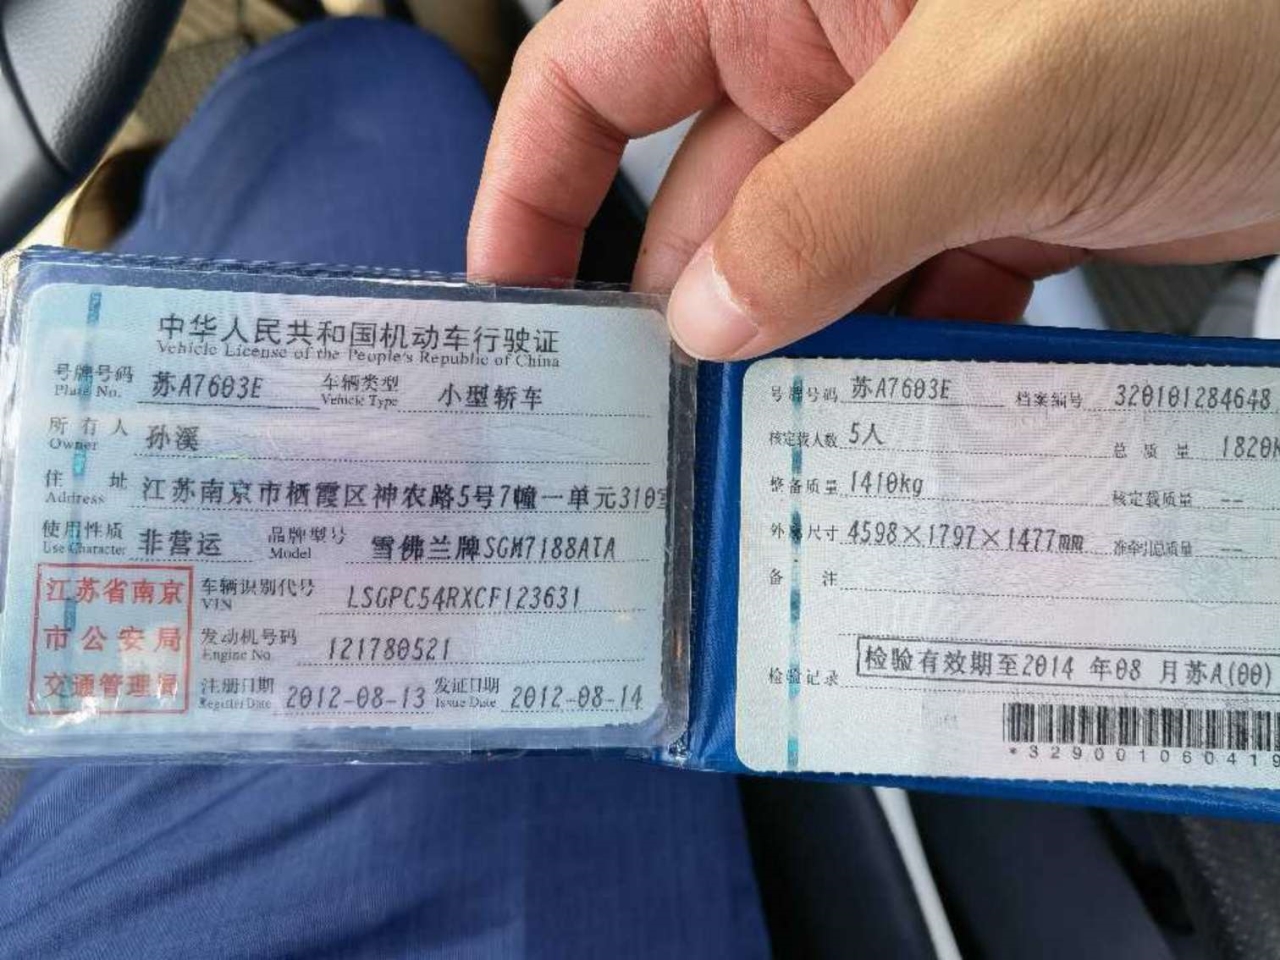 中华人民共和国机动车行驶证
Vehicle License of the People's Republic of China
号牌号码 苏A7603E 车辆类型 小型轿车
Plate No. Vehicle Type
所有人 孙溪
Owner
住址 江苏南京市栖霞区神农路5号7幢一单元310室
Address
使用性质 非营运 品牌型号 雪佛兰牌SGM7188ATA
Use Character Model
江苏省南京
市公安局
交通管理局
车辆识别代号 LSGPC54RXCF123631
VIN
发动机号码 121780521
Engine No.
注册日期 2012-08-13 发证日期 2012-08-14
Register Date Issue Date
号牌号码 苏A7603E 档案编号 320101284648
核定载人数 5人 总质量 1820K
整备质量 1410kg 核定载质量 --
外廓尺寸 4598×1797×1477mm 准牵引总质量 --
备注
检验记录 检验有效期至2014年08月苏A(00)
*329001060419